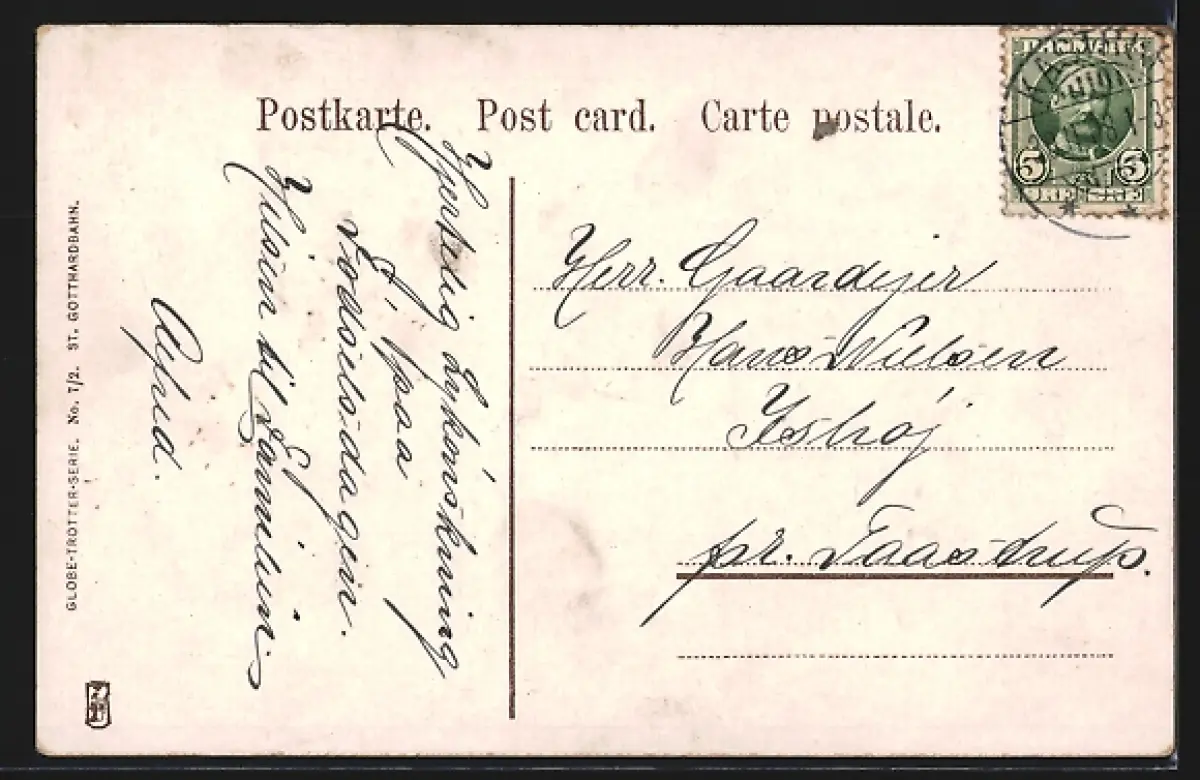 Postkarte. Post card. Carte postale.
DANMARK
5 5
ØRE
Hjertelig Lykønskning
paa
Fødselsdagen.
Hilsen til Familien.
Herr. Gaardejer
Hans Nielsen
Ishøj
pr. Taastrup.
GLOBE-TROTTER-SERIE. No. 7/2. ST. GOTTHARDBAHN.